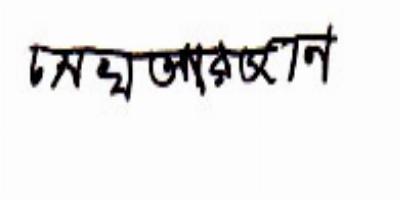 সেখ আরজান